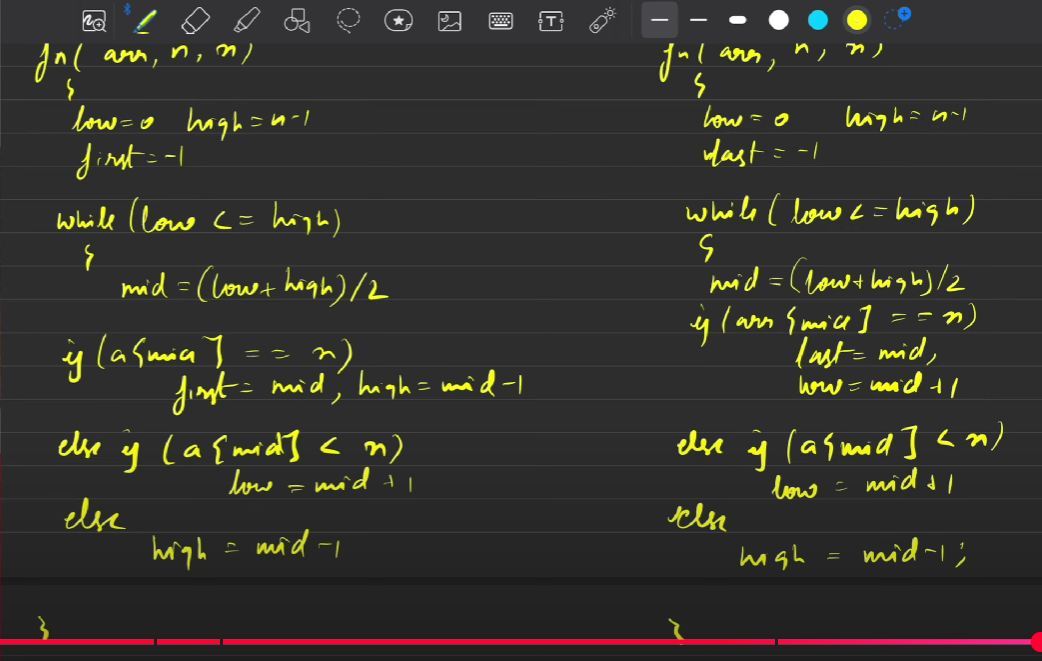 fn( arr, n, x)
{
low=0 high=n-1
first=-1
while (low <= high)
{
mid=(low+high)/2
if (a[mid] == x)
first= mid, high= mid-1
else if (a[mid] < x)
low = mid+1
else
high = mid-1
}
fn( arr, n, x)
{
low=0 high=n-1
last=-1
while( low<=high)
{
mid=(low+high)/2
if (arr[mid] == x)
last=mid,
low=mid+1
else if (a[mid] < x)
low = mid+1
else
high = mid-1;
}